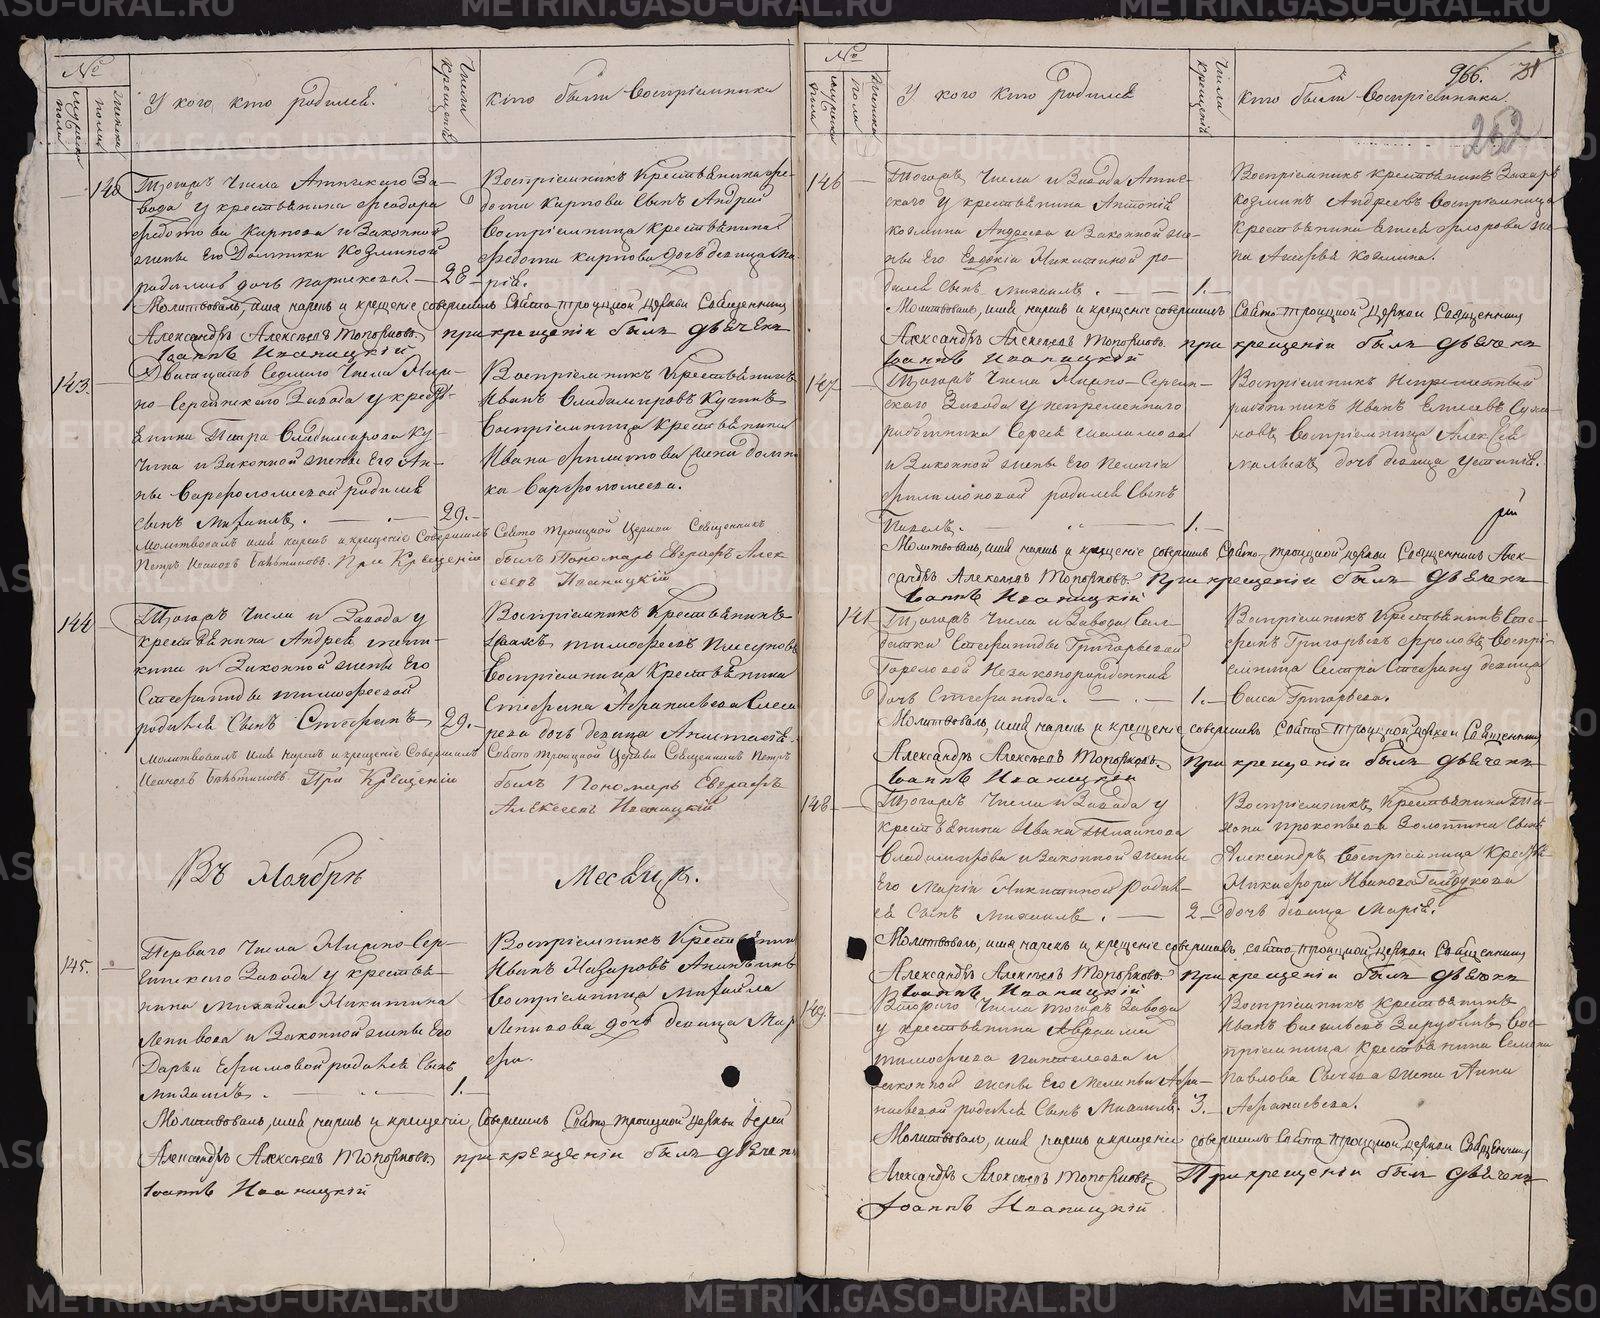 №
мужеска пола
женска пола
У кого, кто родился.
Числа крещенія
кто были воспріемники
140
Тогожъ Числа Атигскаго За-
вода у крестьянина Феодора
Федотова Карпова и Законной
жены его Домники Козминой
родилась дочь Параскева. — 28 —
Воспріемникъ Крестьянина Фе-
дота Карпова Сынъ Андрей
Воспріемница крестьянина
Федота Карпова дочь девица Ма-
рія.
Молитвовалъ, имя нарекъ и крещеніе совершилъ Свято Троицкой Церкви Священникъ
Александръ Алексѣевъ Топорковъ. при крещеніи былъ дьячекъ
Іоаннъ Иваницкій
143.
Двадцать Седмаго Числа Михай-
ло-Сергинскаго Завода у крест-
янина Петра Владимирова Ку-
чина и Законной жены его Ан-
ны Варфоломеевой родился
сынъ Михаилъ. — 29. —
Воспріемникъ Крестьянинъ
Иванъ Владимировъ Кучинъ
Воспріемница Крестьянина
Ивана Филатова жена Домни-
ка Варфоломеева.
Молитвовалъ имя нарекъ и крещеніе Совершилъ Свято Троицкой Церкви Священникъ
Петръ Ивановъ При Крещеніи былъ Пономарь Евграфъ Алек
сеевъ Иваницкій
144
Тогожъ Числа и Завода у
крестьянина Андрея
и Законной жены его
Стефаниды Тимофеевой
родился Сынъ Стефанъ 29. —
Воспріемникъ Крестьянинъ
Тимофеевъ Плясуновъ
Воспріемница Крестьянина
Стефана Афанасьева
дочь девица Анастасія.
Молитвовалъ имя нарекъ и крещеніе Совершилъ Свято Троицкой Церкви Священникъ Петръ
Ивановъ При Крещеніи былъ Пономарь Евграфъ
Алексеевъ Иваницкій
Въ Ноябрѣ Месяцѣ.
145.
Перваго Числа Михайло-Сер-
гинскаго Завода у крестья-
нина Михайла Никитина
Лепихова и Законной жены его
Дарьи Ефимовой родился Сынъ
Михаилъ. — 1. —
Воспріемникъ Крестьянинъ
Иванъ Назаровъ Ананьинъ
Воспріемница Михайла
Лепихова дочь девица Мар-
фа.
Молитвовалъ, имя нарекъ и крещеніе Совершилъ Свято Троицкой Церкви Іерей
Александръ Алексѣевъ Топорковъ, при крещеніи былъ дьячекъ
Іоаннъ Иваницкій
966. 31
252
№
мужеска пола
женска пола
У кого кто родился
Числа крещеній
кто были Воспріемники.
146
Тогожъ Числа и Завода Атиг-
скаго у крестьянина Антонія
Козмина Андреева и Законной же-
ны его Евдокіи Никитиной ро-
дился Сынъ Михаилъ. — 1. —
Воспріемникъ Крестьянинъ Захаръ
Козминъ Андреевъ Воспріемница
Крестьянина Елисея Фролова же-
на Агафья Козмина.
Молитвовалъ, имя нарекъ и крещеніе совершилъ Свято Троицкой Церкви Священникъ
Александръ Алексѣевъ Топорковъ. при крещеніи былъ дьячекъ
Іоаннъ Иваницкій
147
Тогожъ Числа Михайло-Сергин-
скаго Завода у непременнаго
работника Сергея
и Законной жены его Пелагіи
Филимоновой родился Сынъ
Павелъ. — 1. —
Воспріемникъ Непременный
работникъ Иванъ Елисеевъ
Воспріемница Алексея
дочь девица Устинія.
Молитвовалъ, имя нарекъ и крещеніе совершилъ Свято-Троицкой Церкви Священникъ Алек-
сандръ Алексѣевъ Топорковъ. При крещеніи былъ дьячекъ
Іоаннъ Иваницкій
141
Тогожъ Числа и Завода Сол-
датки Стефаниды Григорьевой
Гореловой Незаконорожденная
дочь Стефанида. — 1. —
Воспріемникъ Крестьянинъ Сте-
фанъ Григорьевъ Фроловъ, Воспрі-
емница Сестра Стефану девица
Васса Григорьева.
Молитвовалъ, имя нарекъ и крещеніе совершилъ Свято Троицкой Церкви Священникъ
Александръ Алексѣевъ Топорковъ. при крещеніи былъ дьячекъ
Іоаннъ Иваницкій
148
Тогожъ Числа и Завода у
крестьянина Ивана
Владимирова и Законной жены
Его Маріи Никитиной родил-
ся Сынъ Михаилъ. — 2 —
Воспріемникъ, Крестьянина Ти-
хона Прокопьева Золотина Сынъ
Александръ, Воспріемница Крестья-
Никифора Иванова Гайдукова
дочь девица Марія.
Молитвовалъ, имя нарекъ и крещеніе совершилъ, Свято Троицкой Церкви Священникъ
Александръ Алексѣевъ Топорковъ. при крещеніи былъ дьячекъ
Іоаннъ Иваницкій
149.
Втораго Числа тогожъ Завода
у крестьянина Авраама
Тимофеева Пантелеева и
законной жены Его Меланьи Афа-
насьевой родился Сынъ Михаилъ. 3. —
Воспріемникъ Крестьянинъ
Иванъ Васильевъ Зарубинъ, Вос-
пріемница Крестьянина Семена
Павлова Сычева жена Анна
Афанасьева.
Молитвовалъ, имя нарекъ и крещеніе совершилъ Свято Троицкой церкви Священникъ
Александръ Алексѣевъ Топорковъ. При крещеніи былъ дьячекъ
Іоаннъ Иваницкій
METRIKI.GASO-URAL.RU